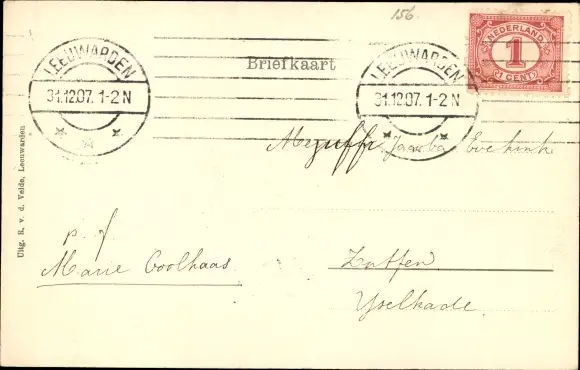 156.
NEDERLAND
1
CENT
LEEUWARDEN
31.12.07. 1-2 N
LEEUWARDEN
31.12.07. 1-2 N
Briefkaart
Mejuffr. Jacoba
p. f.
Marie Coolhaas
Zutfen
Yselkade.
Uitg. R. v. d. Velde, Leeuwarden